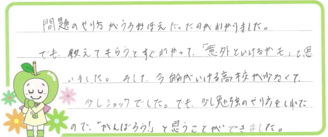 問題のやり方がうろおぼえだったのがわかりました。
でも、教えてもらうとすぐわかって、「意外といけるかも」と思
いました。そして、今の自分がいける高校が少なくて、
少しショックでした。でも、少し勉強のやり方をしれた
ので、「がんばろう！」と思うことができました。